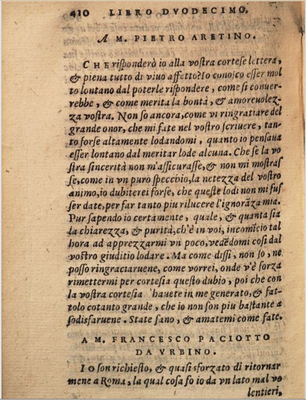 410 LIBRO DVODECIMO.
A M. PIETRO ARETINO.
CHE risponderò io alla vostra cortese lettera,
& piena tutto di viuo affetto? Io conosco esser mol
to lontano dal poterle rispondere, come si conuer-
rebbe, & come merita la bontà, & amoreuolez-
za vostra. Non so ancora, come vi ringratiare del
grande onor, che mi fate nel vostro scriuere, tan-
to forse altamente lodandomi, quanto io pensaua
esser lontano dal meritar lode alcuna. Che se la vo
stra sincerità non m'assicurasse, & non mi mostras
se, come in vn puro specchio, la netezza del vostro
animo, io dubiterei forse, che queste lodi non mi fus
ser date, per far tanto piu rilucere l'ignorāza mia.
Pur sapendo io certamente, quale, & quanta sia
la chiarezza, & purità, ch'è in voi, incomīcio tal
hora ad apprezzarmi vn poco, veaēdomi così dal
vostro giuditio lodare. Ma come dissi, non so, ne
posso ringratiaruene, come vorrei, onde v'è forza
rimettermi per cortesia questo dubio, poi che con
la vostra cortesia l'hauete in me generato, & fat-
tolo cotanto grande, che io non son piu bastante a
sodisfaruene. State sano, & amatemi come fate.
A M. FRANCESCO PACIOTTO
DA VRBINO.
Io son richiesto, & quasi sforzato di ritornar
mene a Roma, la qual cosa fo io da vn lato mal vo
lentieri,